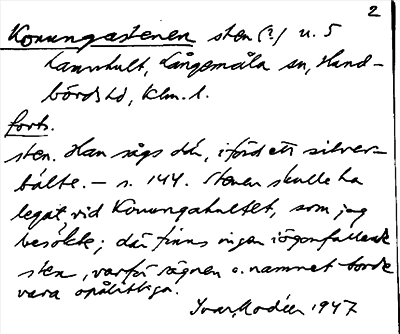 2
Konungastenen sten (?) u. 5
Lannhult, Långemåla sn, Hand-
börds hd, Klm. l.
forts.
sten. Han sågs där, iförd ett silver-
bälte. – s. 144. Stenen skulle ha
legat vid Konungahultet, som jag
besökte; där finns ingen iögonfallande
sten, varför sägnen o. namnet borde
vara opålitliga.
Ivar Modéer 1947